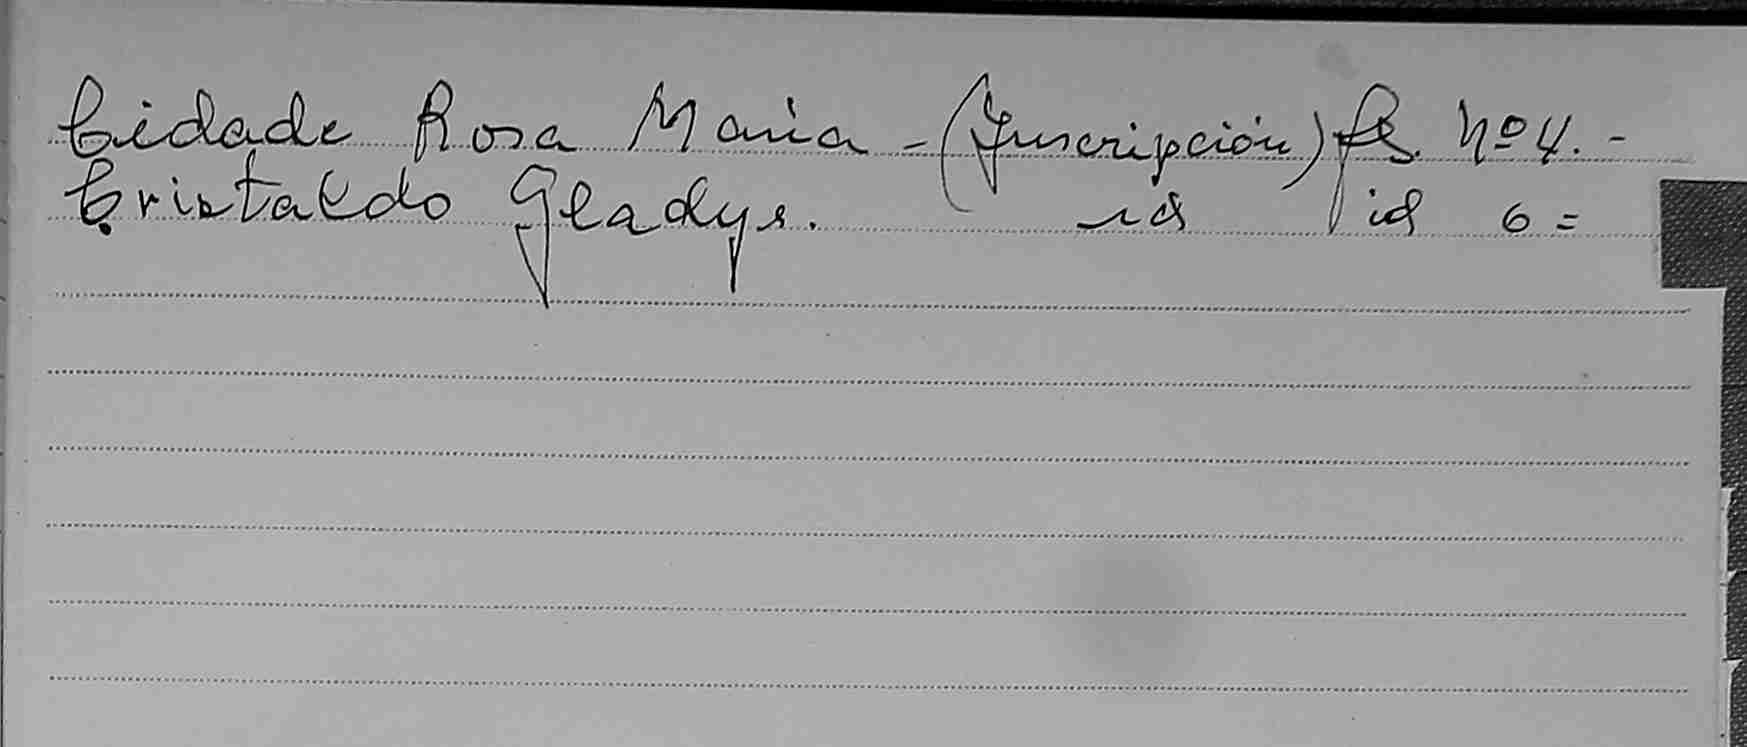 Cidade Rosa Maria - (Inscripción) fs. Nº 4. -
Cristaldo Gladys. id id 6 =